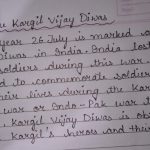 Kargil Vijay Diwas
year 26 July is marked as
Diwas in India. India lost
soldiers during this war
d to commemorate soldiers
their lives during the Kar
war or Indo-Pak war t
Kargil Vijay Diwas is ob
Kargil's heros and thu